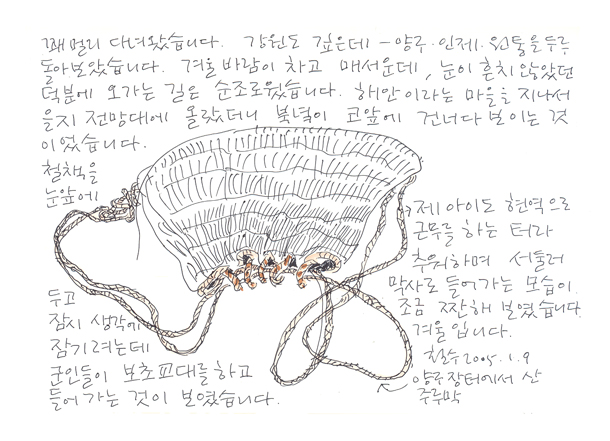 꽤 멀리 다녀왔습니다. 강원도 깊은데 - 양구·인제·원통을 두루
돌아보았습니다. 겨울바람이 차고 매서운데, 눈이 흔치 않았던
덕분에 오가는 길은 순조로웠습니다. 해안이라는 마을을 지나서
을지 전망대에 올랐더니 북녘이 코앞에 건너다 보이는 것
이었습니다.
철책을
눈앞에
두고
잠시 생각에
잠기려는데
군인들이 보초교대를 하고
들어가는 것이 보였습니다.
제 아이도 현역으로
근무를 하는 터라
추워하며 서둘러
막사로 들어가는 모습이
조금 짠해 보였습니다
겨울입니다.
철수 2005.1.9
양구장터에서 산
주루막